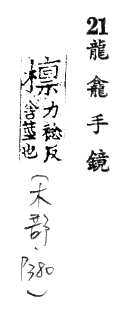 21龍龕手鏡
檁力稔反
倉檁也
(木部、P380)